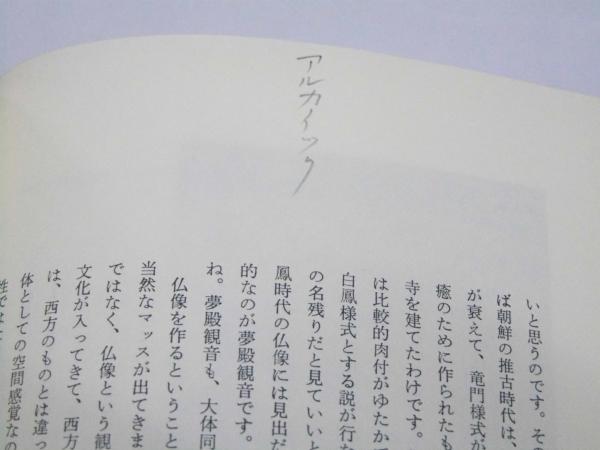 アルカイック
いと思うのです。その
ば朝鮮の推古時代は、
が衰えて、竜門様式が
癒のために作られたも
寺を建てたわけです。
は比較的肉付がゆたかで
白鳳様式とする説が行な
の名残りだと見ていいと
鳳時代の仏像には見出だ
的なのが夢殿観音です。
ね。夢殿観音も、大体同
仏像を作るということ
当然なマッスが出てきま
ではなく、仏像という観
文化が入ってきて、西方
は、西方のものとは違っ
体としての空間感覚なの
性では